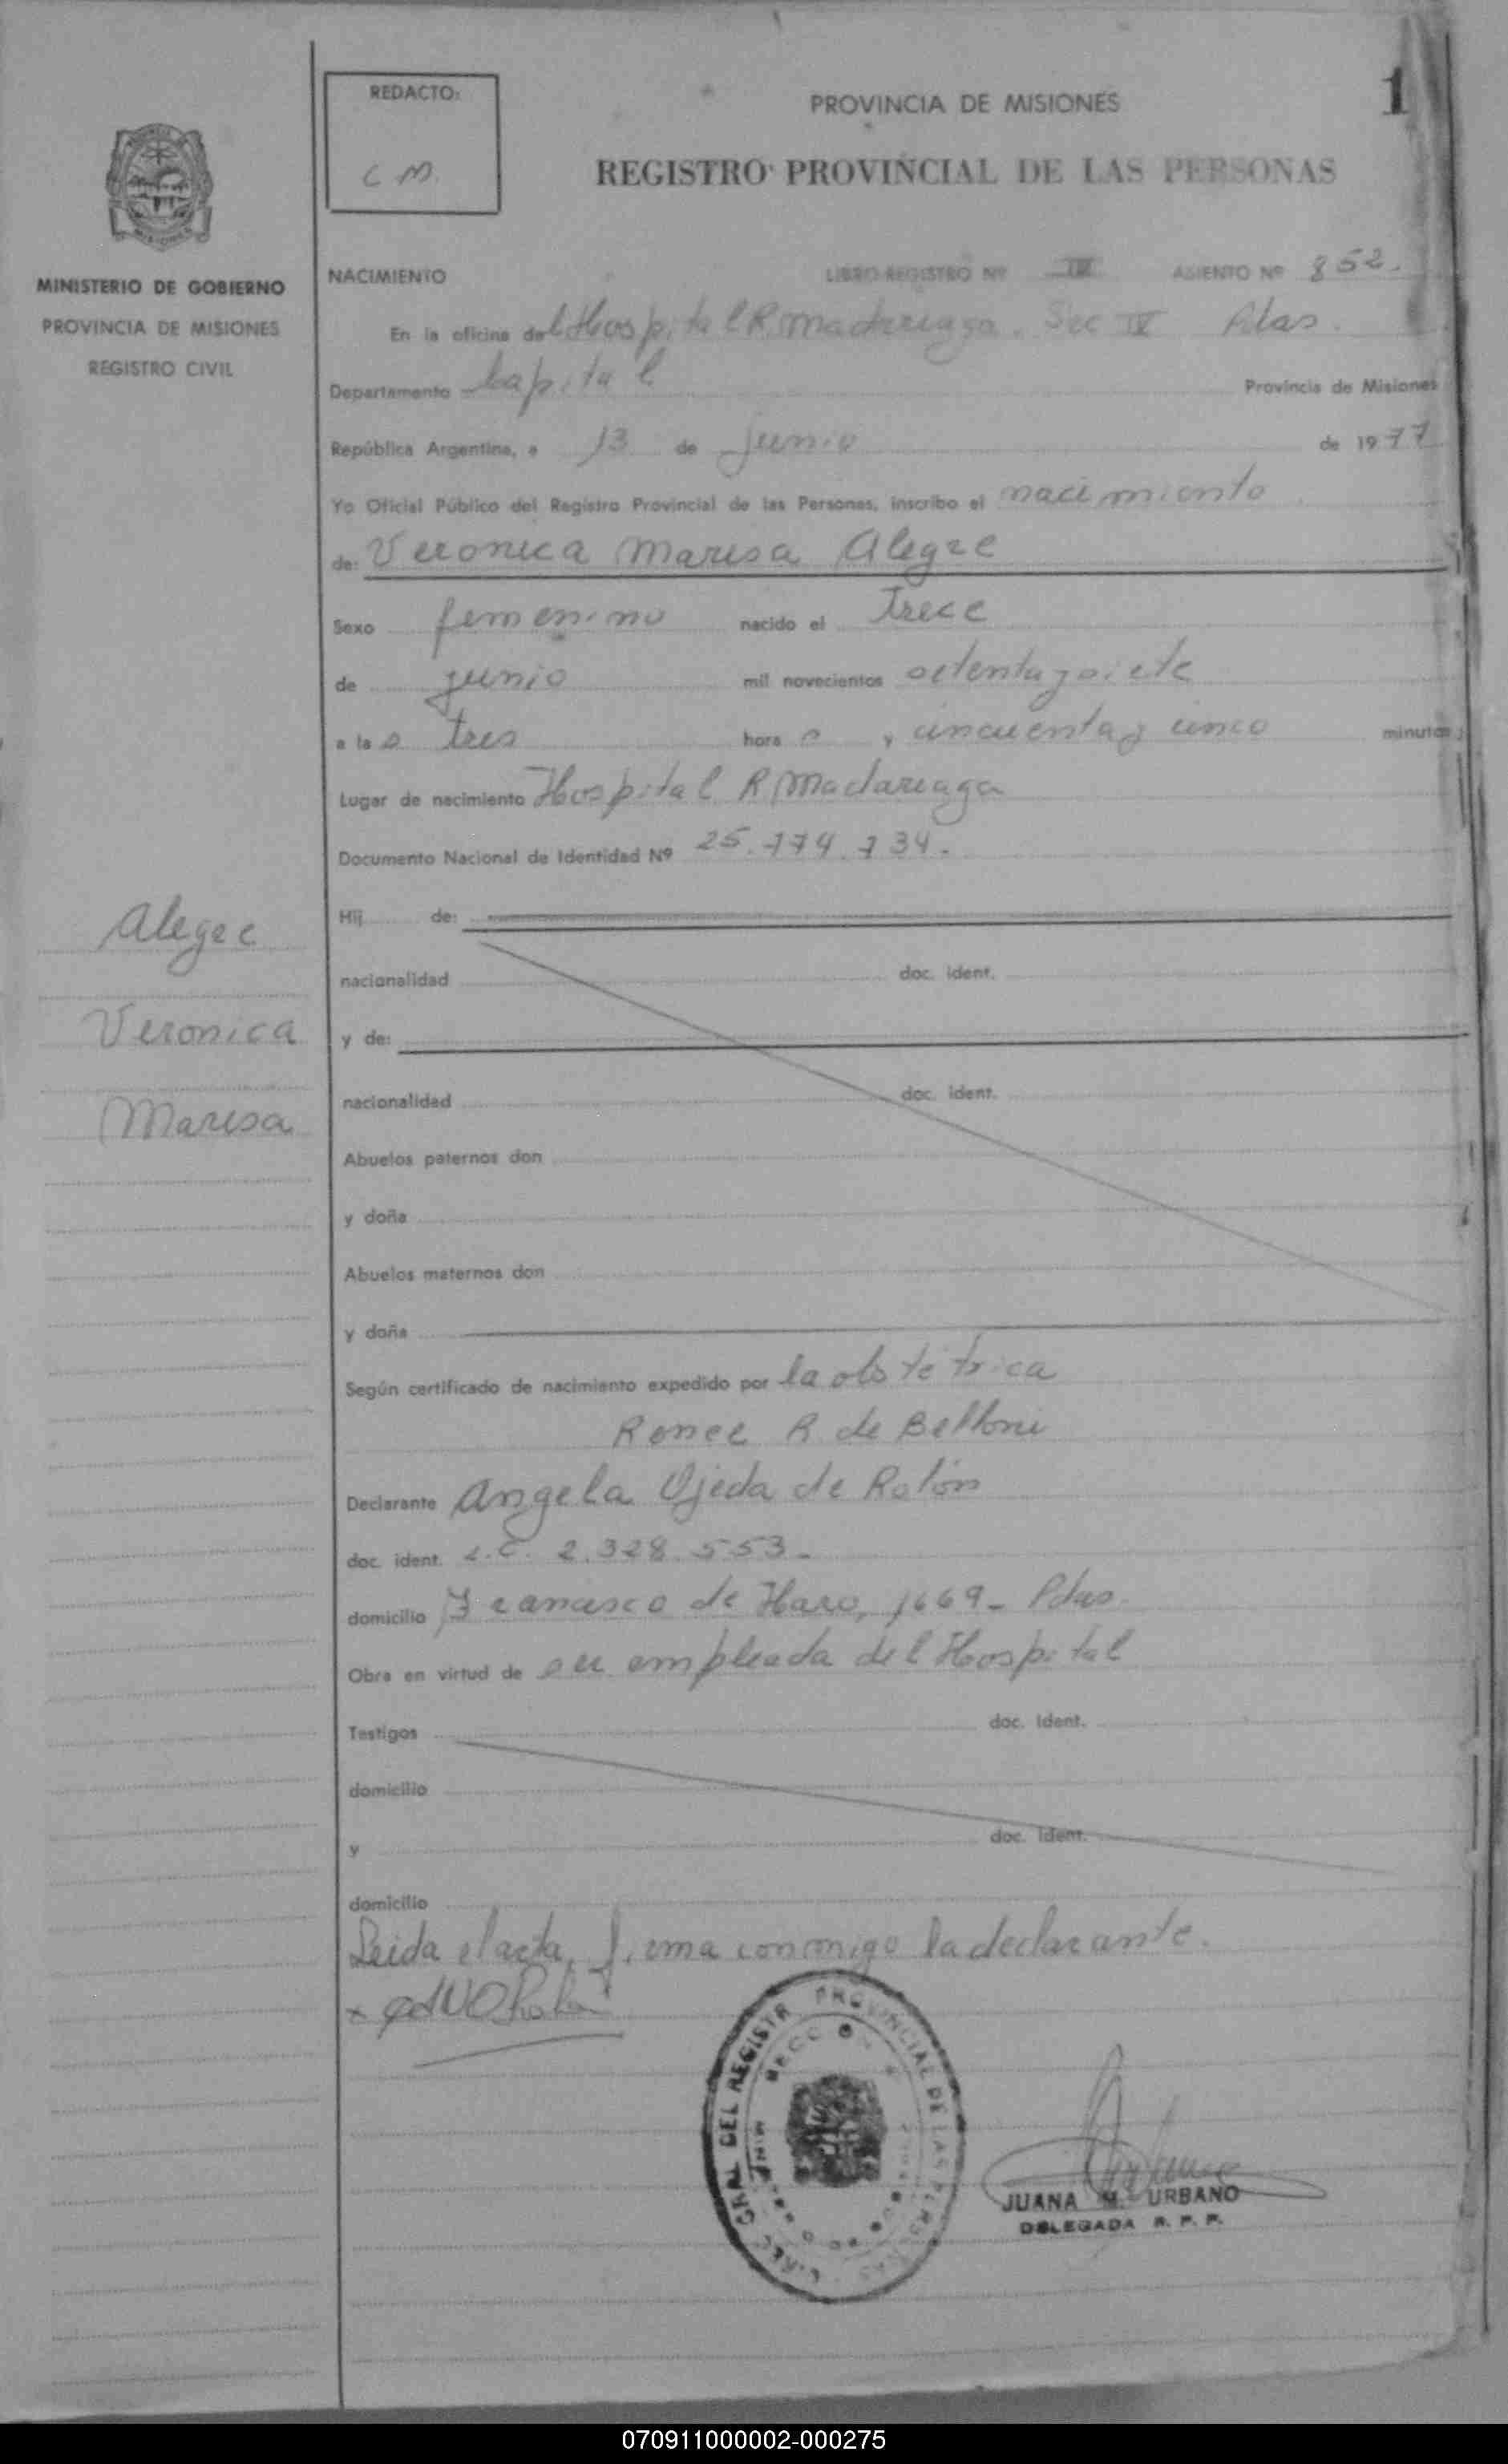 REDACTO:
C M.
PROVINCIA DE MISIONES
1
REGISTRO PROVINCIAL DE LAS PERSONAS
MINISTERIO DE GOBIERNO
PROVINCIA DE MISIONES
REGISTRO CIVIL
NACIMIENTO LIBRO-REGISTRO Nº IV ASIENTO Nº 852.
En la oficina del Hospital R. Madariaga. Sec IV Pdas.
Departamento Capital Provincia de Misiones
República Argentina, a 13 de junio de 1977
Yo Oficial Público del Registro Provincial de las Personas, inscribo el nacimiento
de: Veronica Marisa Alegre
Sexo femenino nacido el trece
de junio mil novecientos setenta y siete
a las tres horas y cincuenta y cinco minutos
Lugar de nacimiento Hospital R Madariaga
Documento Nacional de Identidad Nº 25.774.734.
Hij de:
nacionalidad doc. ident.
y de:
nacionalidad doc. ident.
Abuelos paternos don
y doña
Abuelos maternos don
y doña
Alegre
Veronica
Marisa
Según certificado de nacimiento expedido por la obstetrica
Renee R. de Belloni
Declarante Angela Ojeda de Rolón
doc. ident. L.C. 2.328.553.
domicilio Francisco de Haro, 1669- Pdas.
Obra en virtud de ser empleada del Hospital
Testigos doc. ident.
domicilio
y doc. ident.
domicilio
Leida el acta, firma conmigo la declarante.
JUANA M. URBANO
DELEGADA R. P. P.
070911000002-000275